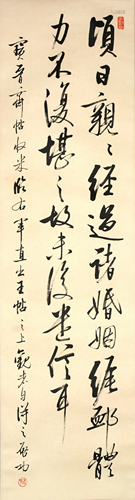 頃日親之經過諸婚姻經郵體
力不復堪之故未復遣信耳
寶晉齋帖收米臨右軍直上王帖之上觀者自得之啟功